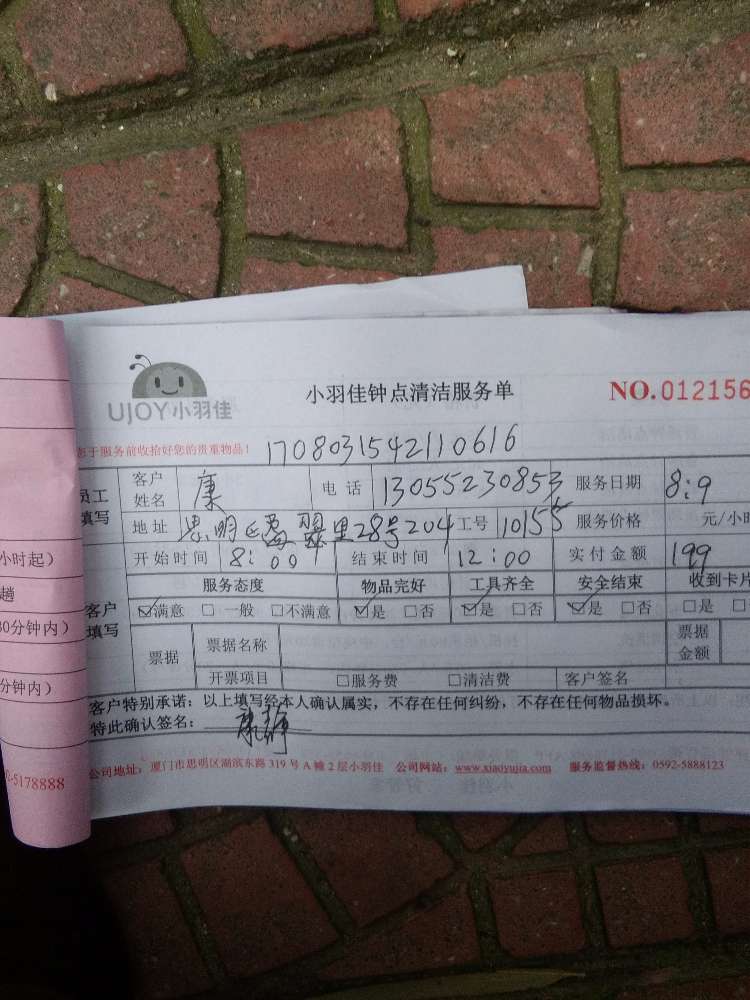 UJOY小羽佳
小羽佳钟点清洁服务单
NO.012156
于服务前收拾好您的贵重物品！
1708031542110616
员工填写
客户姓名 康 电话 13055230853 服务日期 8:9
地址 思明区 里28号204 工号 10155 服务价格 元/小
开始时间 8:00 结束时间 12:00 实付金额 199
客户填写
服务态度 物品完好 工具齐全 安全结束 收到卡片
☑满意 □一般 □不满意 ☑是 □否 ☑是 □否 ☑是 □否 □是 □
票据 票据名称 票据金额
开票项目 □服务费 □清洁费 客户签名
客户特别承诺：以上填写经本人确认属实，不存在任何纠纷，不存在任何物品损坏。
特此确认签名： 康静
公司地址：厦门市思明区湖滨东路319号A幢2层小羽佳 公司网站：www.xiaoyujia.com 服务监督热线：0592-5888123
小时起）
趟
30分钟内）
分钟内）
-5178888